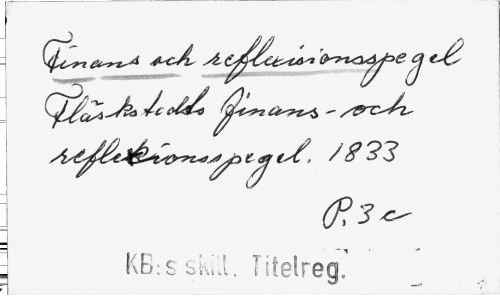 Finans och reflexionsspegel
Fläskstedts finans- och
reflexionsspegel. 1833
P. 3 c
KB:s skill. Titelreg.